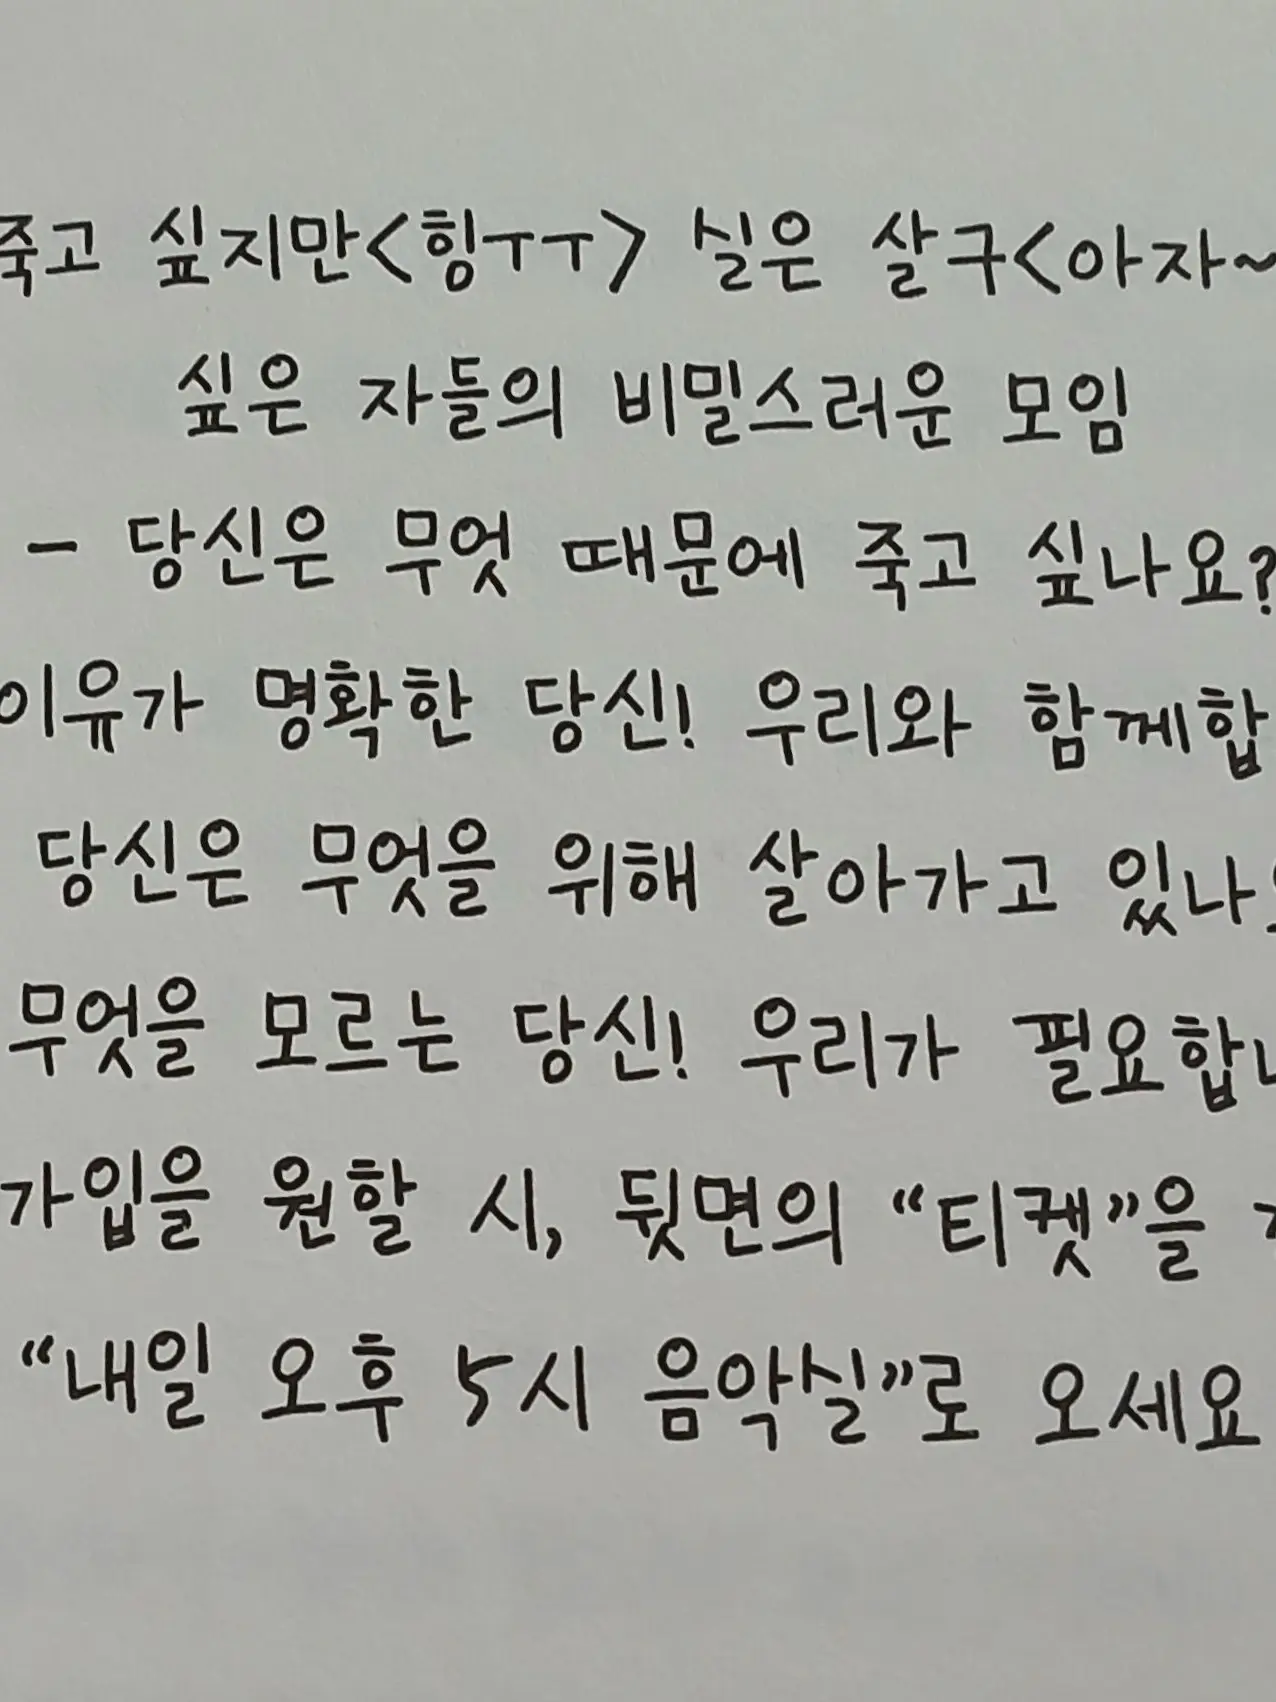 죽고 싶지만<힝ㅜㅜ> 실은 살구<아자~
싶은 자들의 비밀스러운 모임
- 당신은 무엇 때문에 죽고 싶나요?
이유가 명확한 당신! 우리와 함께합
당신은 무엇을 위해 살아가고 있나
무엇을 모르는 당신! 우리가 필요합니
가입을 원할 시, 뒷면의 “티켓”을
“내일 오후 5시 음악실”로 오세요